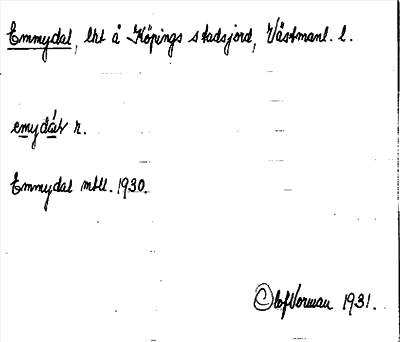 Emmydal, lht å Köpings stadsjord, Västmanl. l.
emydáʟ r.
Emmydal mtll. 1930.
Olof Norman 1931.